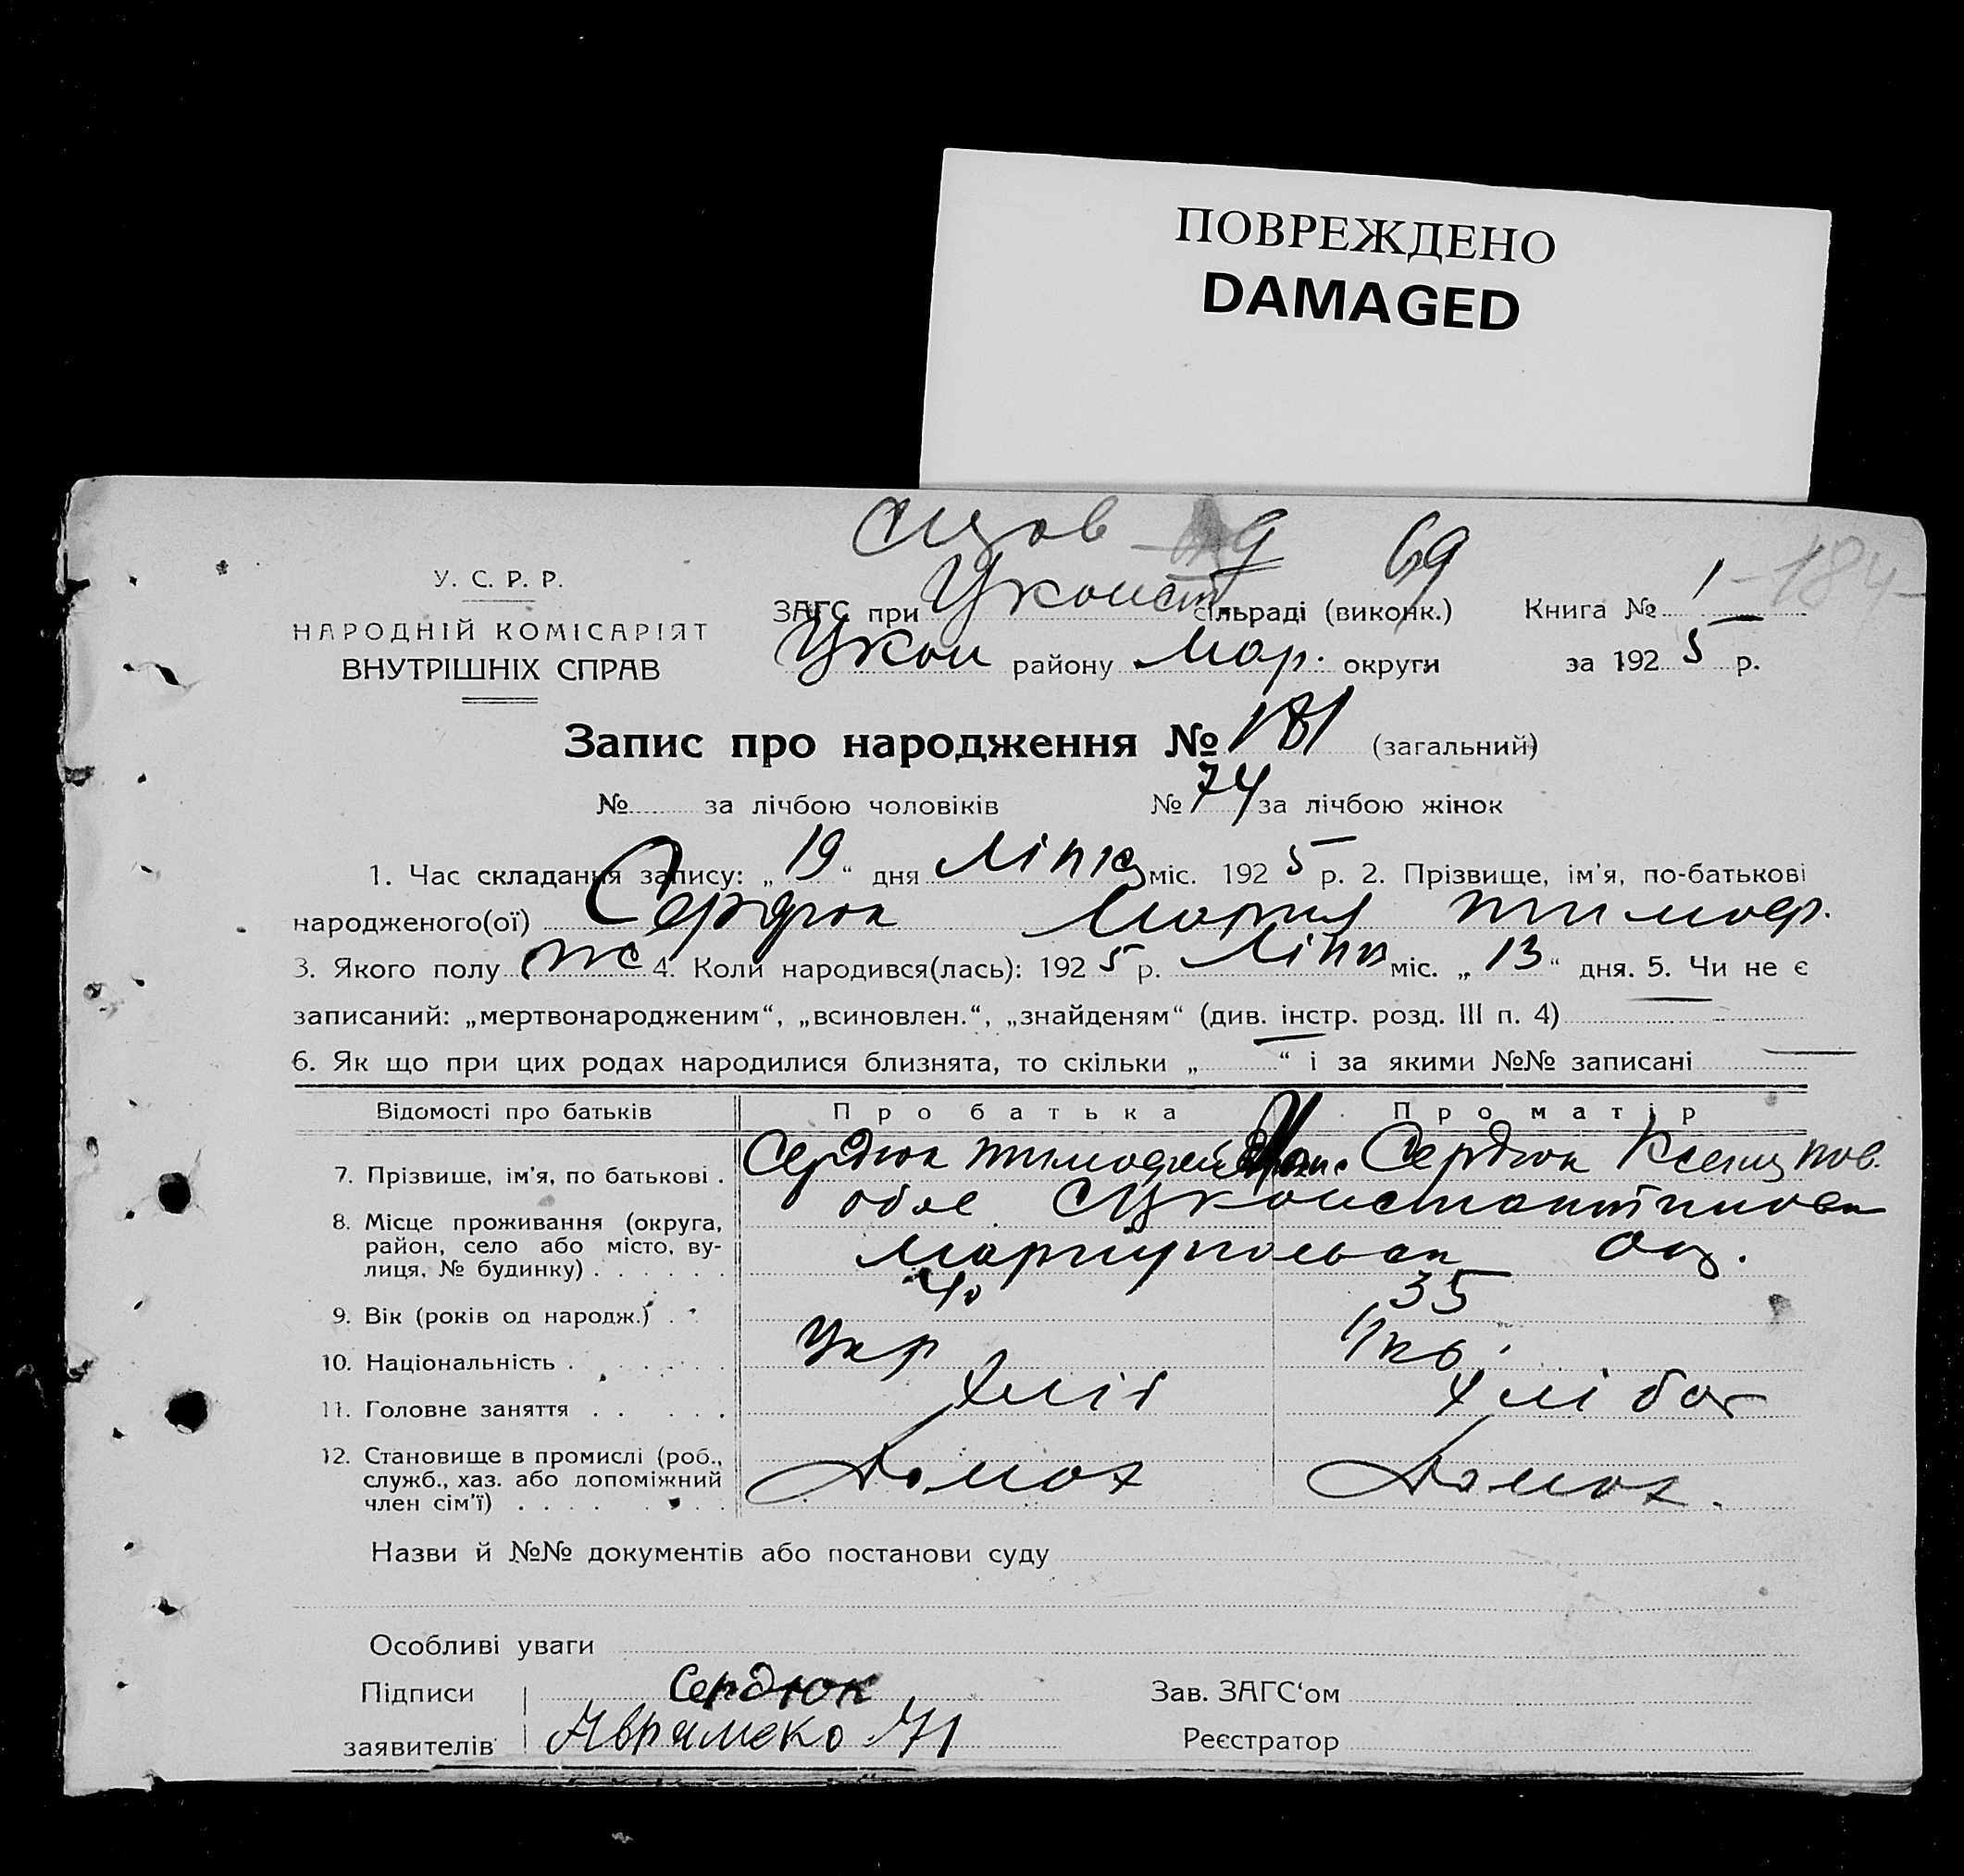 ПОВРЕЖДЕНО
DAMAGED
69
184
У. С. Р. Р.
НАРОДНІЙ КОМІСАРІЯТ
ВНУТРІШНІХ СПРАВ
ЗАГС при Уконст сільраді (виконк.) Книга № 1
Укон району Мар. округи за 1925 р.
Запис про народження № 181 (загальний)
№ за лічбою чоловіків № 74 за лічбою жінок
1. Час складання запису: „19“ дня Ліпня міс. 1925 р. 2. Прізвище, ім'я, по-батькові
народженого(ої) Сердюк Мария Тимоф.
3. Якого полу ж 4. Коли народився(лась): 1925 р. Ліпня міс. „13“ дня. 5. Чи не є
записаний: „мертвонародженим“, „всиновлен.“, „знайденям“ (див. інстр. розд. III п. 4)
6. Як що при цих родах народилися близнята, то скільки „ “ і за якими №№ записані
Відомості про батьків Про батька Про матір
7. Прізвище, ім'я, по батькові . Сердюк Тимофей Сердюк Ксен
8. Місце проживання (округа, обое Уконстантинов
район, село або місто, ву-
лиця, № будинку) . . . . . . Мариупольск ок.
9. Вік (років од народж.) . . 40 35
10. Національність . . . . . . Укр Укр
11. Головне заняття . . . . . Хліб Хлібор
12. Становище в промислі (роб.,
служб., хаз. або допоміжний Домох Домох.
член сім'ї) . . . . . . . .
Назви й №№ документів або постанови суду
Особливі уваги
Підписи Сердюк Зав. ЗАГС'ом
заявителів Аврамеко Реєстратор